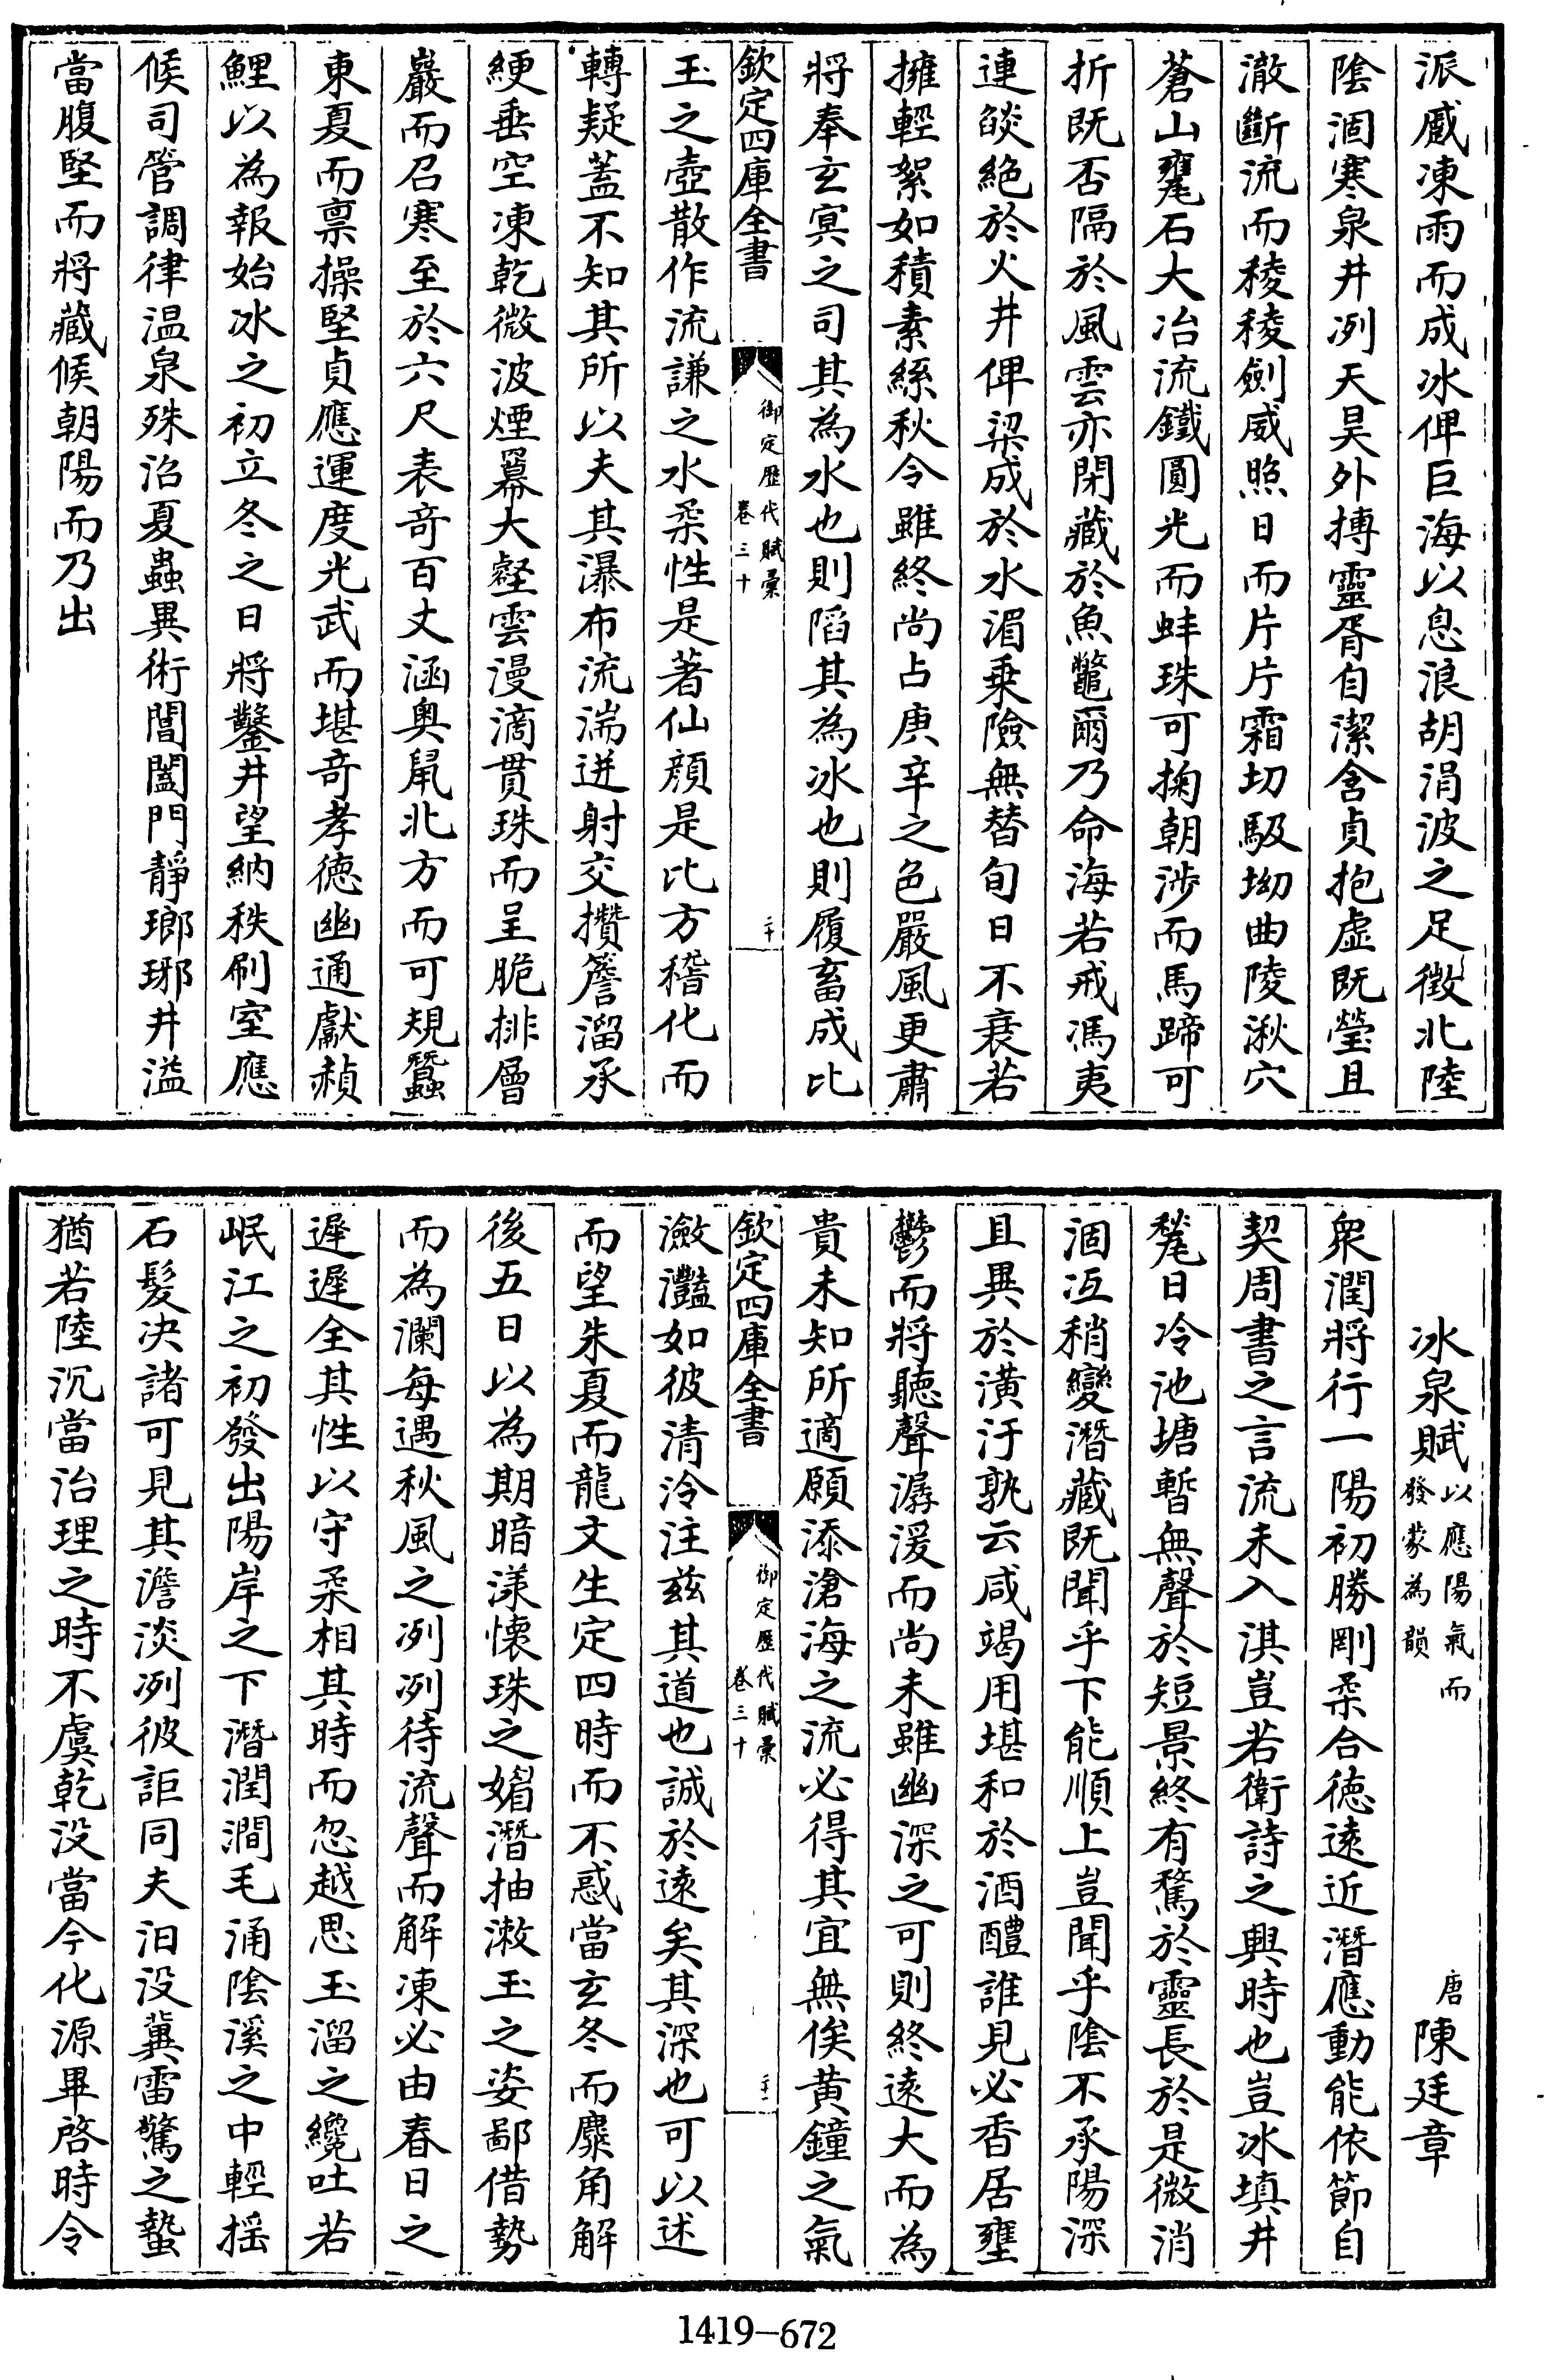 派處凍雨而成冰俾巨海以息浪胡涓波之足徵北陸
陰涸寒泉井冽天昊外摶靈胥自潔含貞抱虛既瑩且
澈斷流而稜稜劍威照日而片片霜切馺坳曲陵湫穴
蒼山甕甃石大冶流鐵圓光而蚌珠可掬朝涉而馬蹄可
折既否隔於風雲亦閉藏於魚鼈爾乃命海若戒馮夷
連燄絕於火井俾梁成於水湄乗險無替旬日不衰若
擁輕絮如積素絲秋令雖終尚占庚辛之色嚴風更肅
將奉玄冥之司其為水也則蹈其為冰也則履畜成比
欽定四庫全書
御定歷代賦彙
卷三十
二十
玉之壺散作流謙之水柔性是著仙顏是比方稽化而
轉疑蓋不知其所以夫其瀑布流湍迸射交攢簷溜承
綆垂空凍乾微波煙羃大壑雲漫滴貫珠而呈脆排層
巖而召寒至於六尺表竒百丈涵奥鼠北方而可規蠶
東夏而禀操堅貞應運度光武而堪竒孝徳幽通獻赬
鯉以為報始冰之初立冬之日將鑿井望納秩刷室應
候司管調律温泉殊治夏蟲異術閶闔門靜瑯琊井溢
當腹堅而將藏候朝陽而乃出
冰泉賦
以應陽氣而
發蒙為韻
唐
陳廷章
衆潤將行一陽初勝剛柔合徳逺近潛應動能依節自
契周書之言流未入淇豈若衛詩之興時也豈冰填井
甃日冷池塘暫無聲於短景終有騖於靈長於是微消
涸冱稍變潛藏既聞乎下能順上豈聞乎陰不承陽深
且異於潢汙孰云咸竭用堪和於酒醴誰見必香居壅
鬱而將聽聲潺湲而尚未雖幽深之可則終逺大而為
貴未知所適願添滄海之流必得其宜無俟黄鐘之氣
欽定四庫全書
御定歷代賦彙
卷三十
二十一
瀲灩如彼清泠注兹其道也誠於逺矣其深也可以述
而望朱夏而龍文生定四時而不惑當玄冬而麋角解
後五日以為期暗漾懐珠之媚潛抽漱玉之姿鄙借勢
而為瀾每遇秋風之冽冽待流聲而解凍必由春日之
遲遲全其性以守柔相其時而忽越思玉溜之纔吐若
岷江之初發出陽岸之下潛潤澗毛涌陰溪之中輕揺
石髮决諸可見其澹淡冽彼詎同夫汩没冀雷驚之蟄
猶若陸沉當治理之時不虞乾没當今化源畢啓時令
1419-672